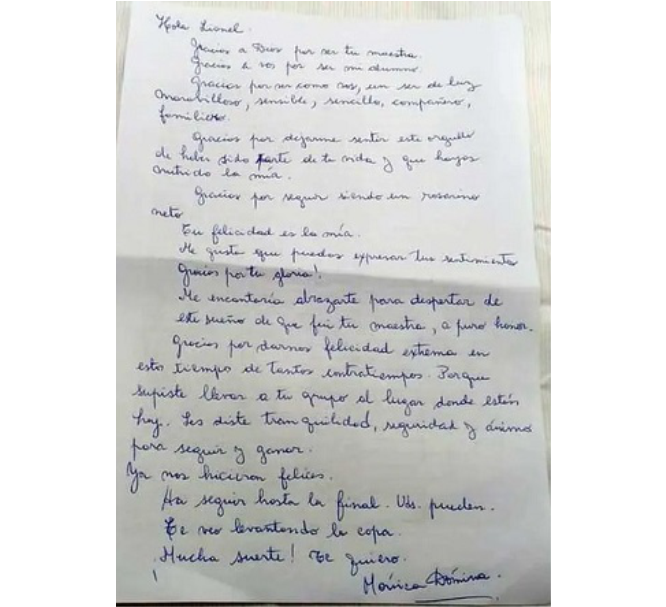 Hola Lionel.
Gracias a Dios por ser tu maestra.
Gracias a vos por ser mi alumno.
Gracias por ser como sos, un ser de luz
maravilloso, sensible, sencillo, compañero,
familiero.
Gracias por dejarme sentir este orgullo
de haber sido parte de tu vida y que hayas
nutrido la mía.
Gracias por seguir siendo un rosarino
neto
Tu felicidad es la mía.
Me gusta que puedas expresar tus sentimientos
Gracias por tu gloria!.
Me encantaría abrazarte para despertar de
este sueño de que fui tu maestra, a puro honor.
Gracias por darnos felicidad extrema en
esto tiempo de tantos contratiempos. Porque
supiste llevar a tu grupo al lugar donde están
hoy. Les diste tranquilidad, seguridad y ánimo
para seguir y ganar.
Ya nos hicieron felices.
Ha seguir hasta la final. Uds. pueden.
Te veo levantando la copa.
Mucha suerte! Te quiero.
Mónica Dómina.